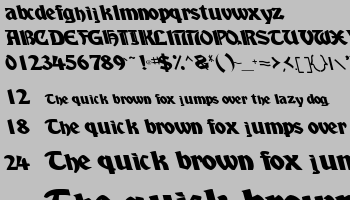 abcdefghijklmnopqrstuvwxyz
ABCDEFGHIJKLMNOPQRSTUVWXY
0123456789
12 The quick brown fox jumps over the lazy dog
18 The quick brown fox jumps over
24 The quick brown fox jum
The quick brown